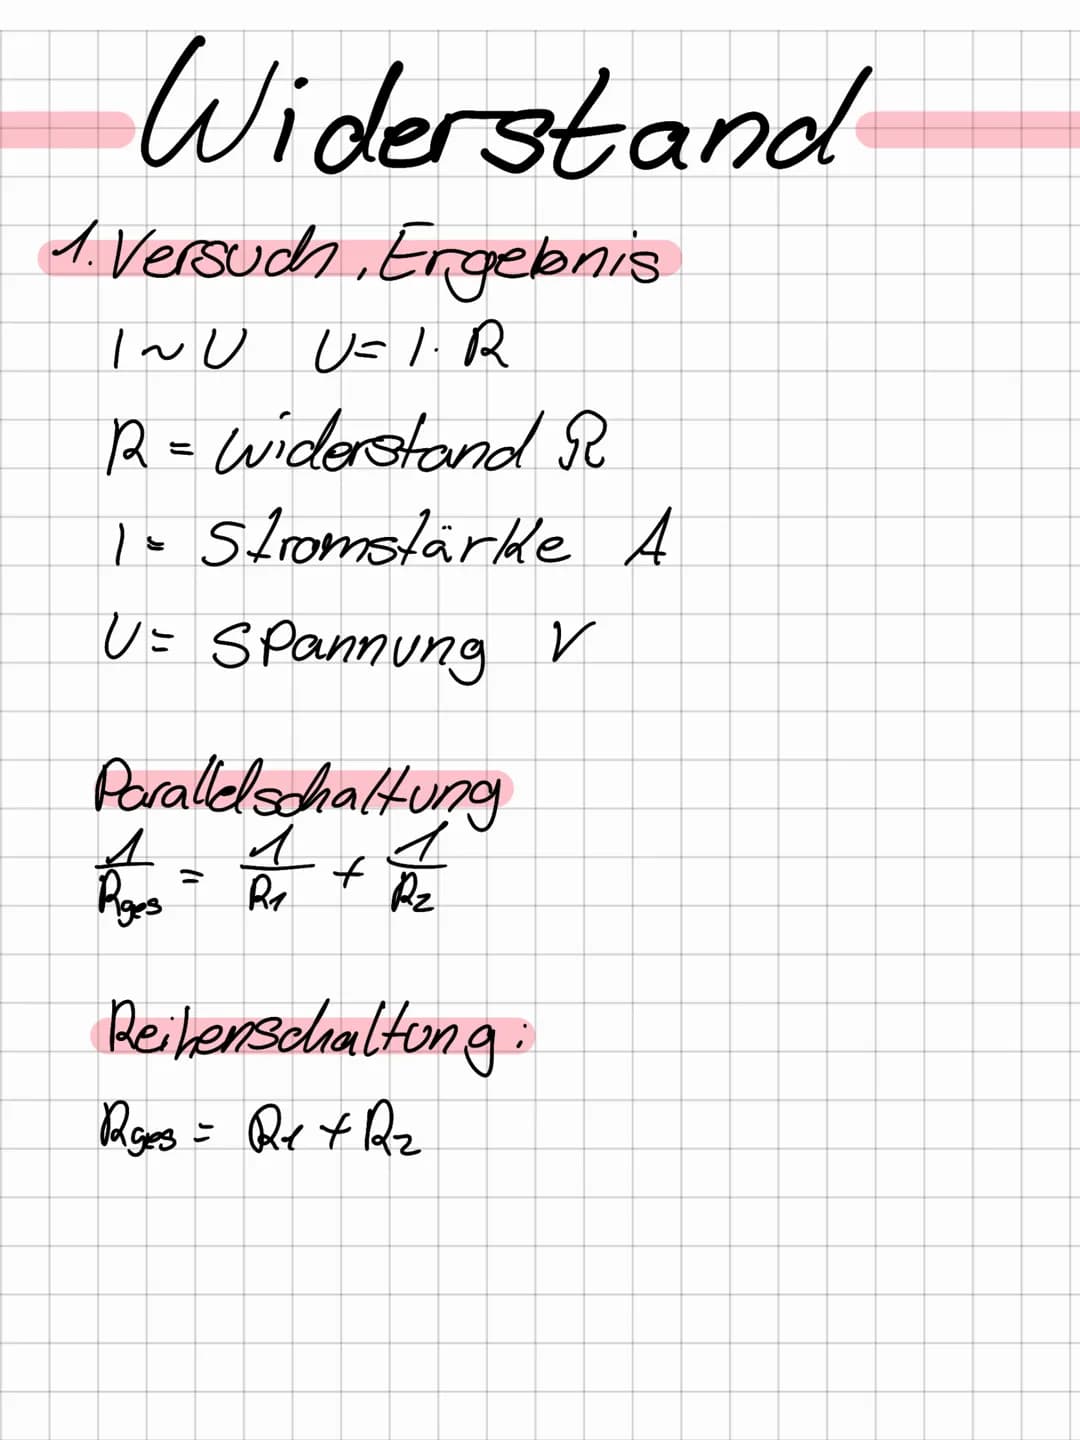 Widerstand
1. Versuch, Ergebnis
I ~ U   U = I · R
R = Widerstand Ω
I = Stromstärke A
U = Spannung V
Parallelschaltung
1/Rges = 1/R1 + 1/R2
Reihenschaltung:
Rges = R1 + R2